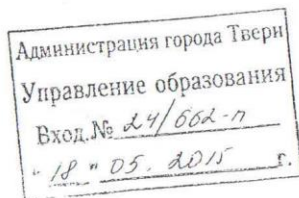 Администрация города Твери
Управление образования
Вход.№ 24/662-п
"18" 05. 2015 г.